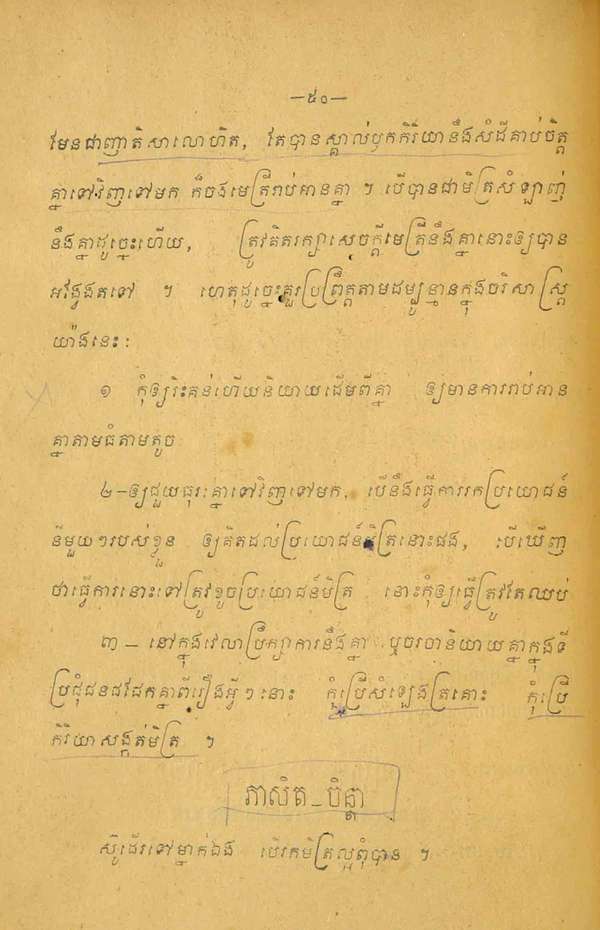 —៥០—
មែនជាញាតិសាលោហិត, តែបានស្គាល់ឫកកិរិយានឹងសំដីគាប់ចិត្ត
គ្នាទៅវិញទៅមក ក៏ចងមេត្រីរាប់អានគ្នា ។ បើបានជាមិត្រសំឡាញ់
នឹងគ្នាដូច្នេះហើយ, ត្រូវគិតរក្សាសេចក្ដីមេត្រីនឹងគ្នានោះឲ្យបាន
អង្វែងតទៅ ។ ហេតុដូច្នេះគួរប្រព្រឹត្តតាមដម្បូន្មានក្នុងចរិសាស្ត្រ
យ៉ាងនេះ:
១ កុំឲ្យរិះគន់ហើយនិយាយដើមពីគ្នា ឲ្យមានការរាប់អាន
គ្នាតាមធំតាមតូច
២-ឲ្យជួយធុរៈគ្នាទៅវិញទៅមក, បើនឹងធ្វើការរកប្រយោជន៍
នីមួយៗរបស់ខ្លួន ឲ្យគិតដល់ប្រយោជន៍មិត្រនោះផង, បើឃើញ
ថាធ្វើការនោះទៅត្រូវខូចប្រយោជន៍មិត្រ នោះកុំឲ្យធ្វើត្រូវតែឈប់
៣ – នៅក្នុងវេលាប្រឹក្សាការនឹងគ្នា ឬចរចានិយាយគ្នាក្នុងទី
ប្រជុំជនជជែកគ្នាពីរឿងអ្វីៗនោះ កុំប្រើសំឡេងត្រគោះ កុំប្រើ
កិរិយាសង្កត់មិត្រ ។
ភាសិត – បិន្តា
ស៊ូដើរទៅម្នាក់ឯង បើរកមិត្រល្អពុំបាន ។